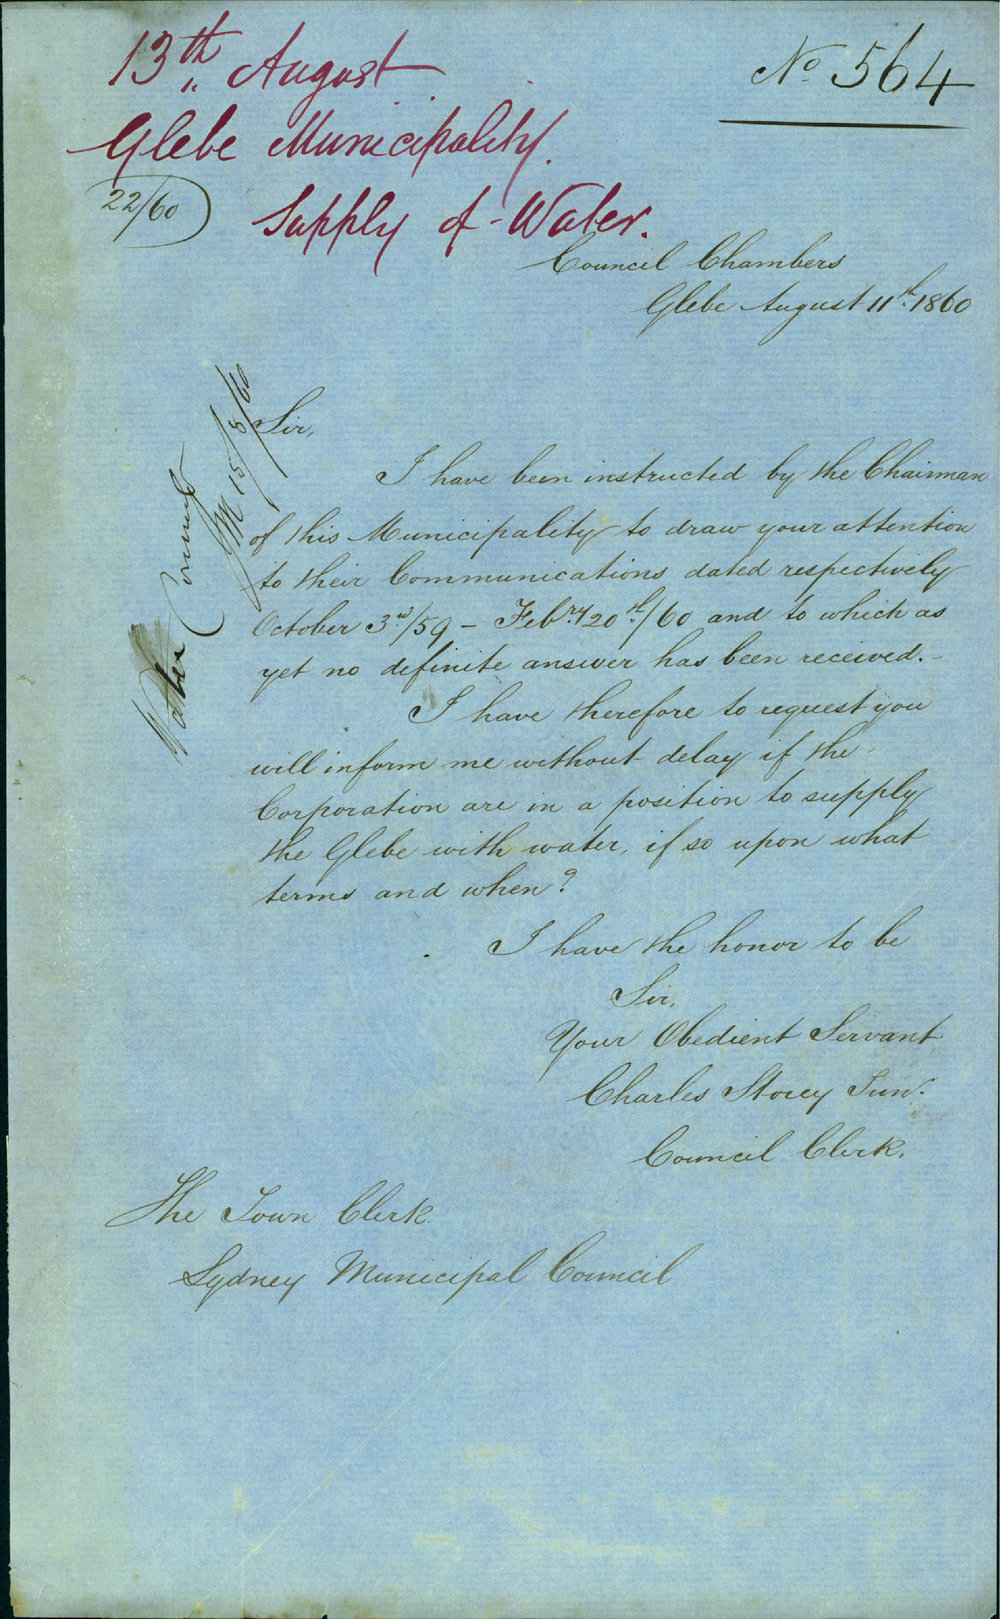 13th August
Glebe Municipality.
Supply of Water.
No 564
22/60
Council Chambers
Glebe August 11th 1860
Water Committee
15/8/60
Sir,
I have been instructed by the Chairman
of this Municipality to draw your attention
to their Communications dated respectively
October 3rd/59 – Febry 20th/60 and to which as
yet no definite answer has been received. –
I have therefore to request you
will inform me without delay if the
Corporation are in a position to supply
the Glebe with water, if so upon what
terms and when?
I have the honor to be
Sir,
Your Obedient Servant
Charles Storey Jun.
Council Clerk.
The Town Clerk.
Sydney Municipal Council